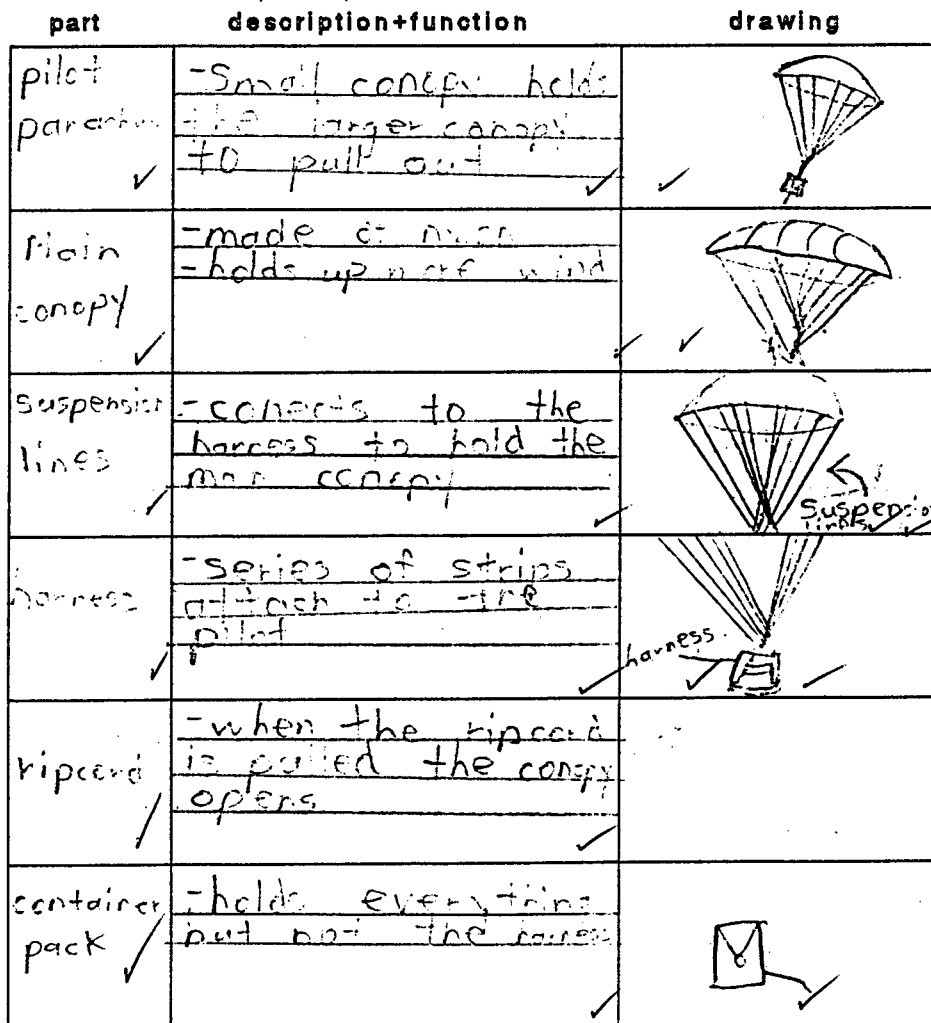 part description+function drawing
pilot
-Small canopy
the larger canopy
to pull out
Main
canopy
-made of
-holds up more wind
suspension
lines
-conects to the
harness to hold the
canopy
Suspension
lines
harness
-series of strips
attach to the
pilot
harness
ripcord
-when the ripcord
is pulled the conopy
opens
container
pack
-holds everything
but not the